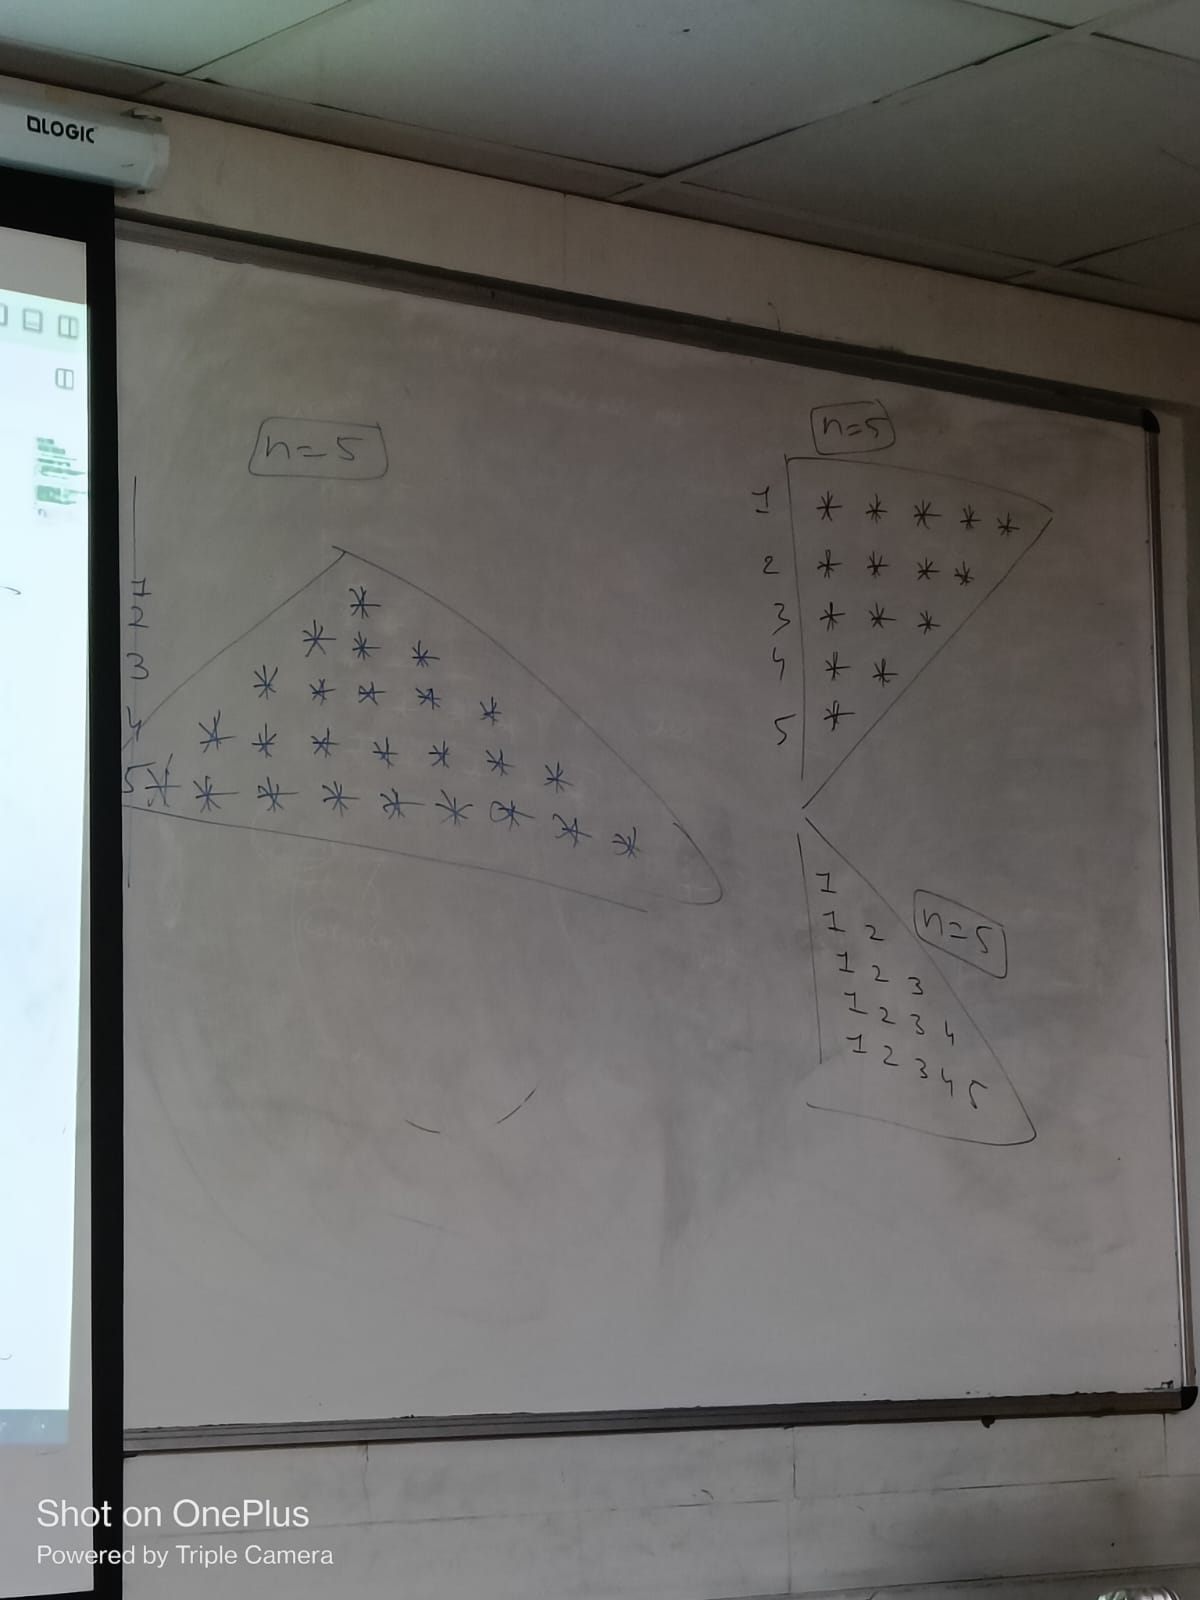 QLOGIC
n=5
1
*
2
* * *
3
* * * * *
4
* * * * * * *
5
* * * * * * * * *
n=5
1 * * * * *
2 * * * *
3 * * *
4 * *
5 *
n=5
1
1 2
1 2 3
1 2 3 4
1 2 3 4 5
Shot on OnePlus
Powered by Triple Camera